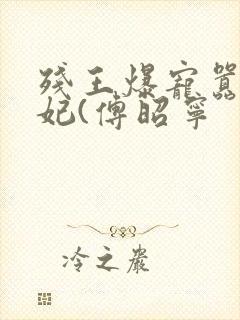 残王爆寵囂
妃(傅昭寧
冷之嚴